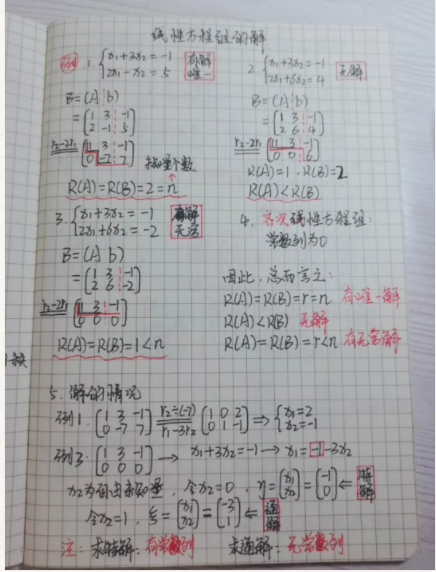 线性方程组的解
例 1. { x₁+3x₂=-1 有解
2x₁-x₂=5 唯一
B=(A ┊ b)
=[1 3 ┊ -1
2 -1 ┊ 5]
r₂-2r₁ [1 3 ┊ -1
0 -7 ┊ 7]
未知量个数
R(A)=R(B)=2=n
2. { x₁+3x₂=-1 无解
2x₁+6x₂=4
B=(A ┊ b)
=[1 3 ┊ -1
2 6 ┊ 4]
r₂-2r₁ [1 3 ┊ -1
0 0 ┊ 6]
R(A)=1, R(B)=2
R(A)<R(B)
3. { x₁+3x₂=-1 有解
2x₁+6x₂=-2 无穷
B=(A b)
=[1 3 ┊ -1
2 6 ┊ -2]
r₂-2r₁ [1 3 ┊ -1
0 0 ┊ 0]
R(A)=R(B)=1<n
4. 齐次线性方程组:
常数列为0
因此, 总而言之:
R(A)=R(B)=r=n 有唯一解
R(A)<R(B) 无解
R(A)=R(B)=r<n 有无穷解
5. 解的情况
例1. [1 3 -1
0 -7 7] r₂÷(-7) r₁-3r₂ [1 0 2
0 1 -1] ⇒ { x₁=2
x₂=-1
例3. [1 3 -1
0 0 0] → x₁+3x₂=-1 → x₁=-1-3x₂
x₂为自由未知量, 令x₂=0, η=(x₁
x₂)=(-1
0) ⇐ 特解
令x₂=1, ξ=(x₁
x₂)=(-3
1) ⇐ 通解
注: 求特解: 有常数列 求通解: 无常数列